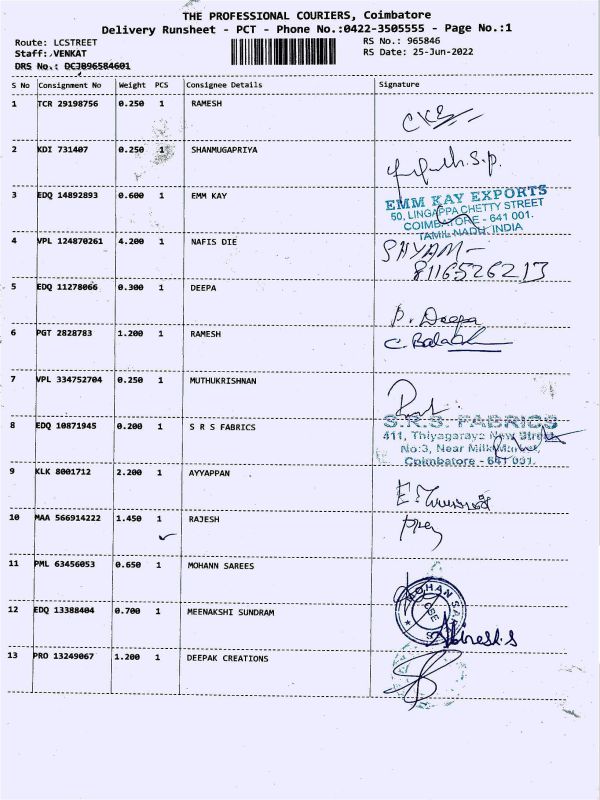 THE PROFESSIONAL COURIERS, Coimbatore
Delivery Runsheet - PCT - Phone No.:0422-3505555 - Page No.:1
Route: LCSTREET
RS No.: 965846
Staff: VENKAT
RS Date: 25-Jun-2022
DRS No.: DCJB96584601
S No Consignment No Weight PCS Consignee Details Signature
1 TCR 29198756 0.250 1 RAMESH
2 KDI 731407 0.250 1 SHANMUGAPRIYA
S.P.
3 EDQ 14892893 0.600 1 EMM KAY
EMM KAY EXPORTS
50, LINGAPPA CHETTY STREET
COIMBATORE - 641 001.
TAMIL NADU, INDIA
4 VPL 124870261 4.200 1 NAFIS DIE
SHYAM-
8116526213
5 EDQ 11278066 0.300 1 DEEPA
P. Deepa
6 PGT 2828783 1.200 1 RAMESH
C. Bala
7 VPL 334752704 0.250 1 MUTHUKRISHNAN
8 EDQ 10871945 0.200 1 S R S FABRICS
S.R.S. FABRICS
411, Thiyagaraya New Street,
No:3, Near Milk Market,
Coimbatore - 641 001.
9 KLK 8001712 2.200 1 AYYAPPAN
10 MAA 566914222 1.450 1 RAJESH
11 PML 63456053 0.650 1 MOHANN SAREES
MOHAN
12 EDQ 13388404 0.700 1 MEENAKSHI SUNDRAM
13 PRO 13249067 1.200 1 DEEPAK CREATIONS